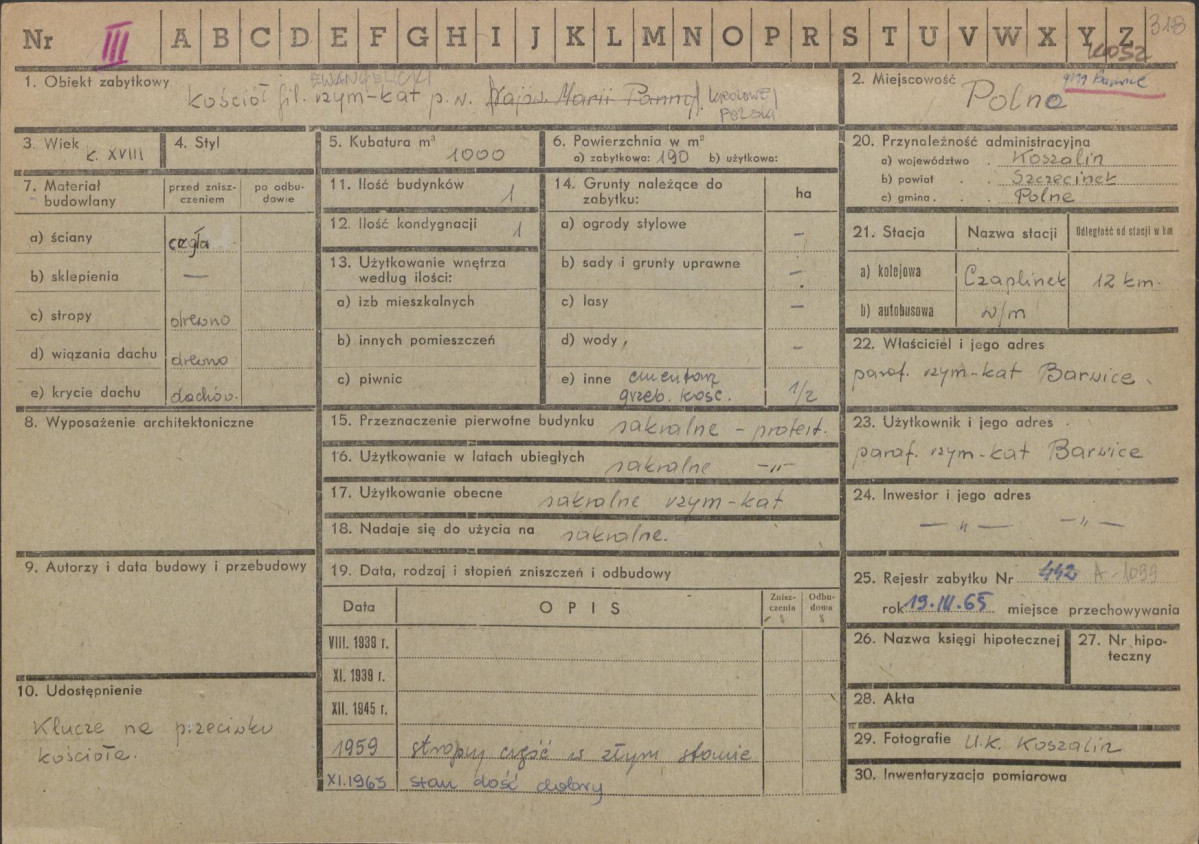 Nr III A B C D E F G H I J K L M N O P R S T U V W X Y Z 318
4052
1. Obiekt zabytkowy
EWANGELICKI
kościół fil. rzym-kat p.w. Najśw. Marii Panny Królowej
Polski
2. Miejscowość
gm Barwice
Polne
3. Wiek
k. XVIII
4. Styl
5. Kubatura m³
1000
6. Powierzchnia w m²
a) zabytkowa: 190 b) użytkowa:
7. Materiał
budowlany
przed znisz-
czeniem
po odbu-
dowie
a) ściany cegła
b) sklepienia —
c) stropy drewno
d) wiązania dachu drewno
e) krycie dachu dachów.
8. Wyposażenie architektoniczne
9. Autorzy i data budowy i przebudowy
10. Udostępnienie
Klucze na przeciwko
kościoła.
11. Ilość budynków 1
12. Ilość kondygnacji 1
13. Użytkowanie wnętrza
według ilości:
a) izb mieszkalnych
b) innych pomieszczeń
c) piwnic
14. Grunty należące do
zabytku:
ha
a) ogrody stylowe —
b) sady i grunty uprawne —
c) lasy —
d) wody —
e) inne cmentarz
grzeb. kość. 1/2
15. Przeznaczenie pierwotne budynku sakralne - protest.
16. Użytkowanie w latach ubiegłych sakralne —"—
17. Użytkowanie obecne sakralne rzym-kat
18. Nadaje się do użycia na sakralne.
19. Data, rodzaj i stopień zniszczeń i odbudowy
Data
OPIS
Znisz-
czenia
%
Odbu-
dowa
%
VIII. 1939 r.
XI. 1939 r.
XII. 1945 r.
1959 stropy część w złym stanie
XI.1965 stan dość dobry
20. Przynależność administracyjna
a) województwo . Koszalin
b) powiat . . Szczecinek
c) gmina . . Polne
21. Stacja Nazwa stacji Odległość od stacji w km
a) kolejowa Czaplinek 12 km.
b) autobusowa w/m
22. Właściciel i jego adres
paraf. rzym-kat Barwice.
23. Użytkownik i jego adres
paraf. rzym-kat Barwice
24. Inwestor i jego adres
—"— —"—
25. Rejestr zabytku Nr 442 A-1099
rok 19.III.65 miejsce przechowywania
26. Nazwa księgi hipotecznej
27. Nr hipo-
teczny
28. Akta
29. Fotografie U.K. Koszalin
30. Inwentaryzacja pomiarowa